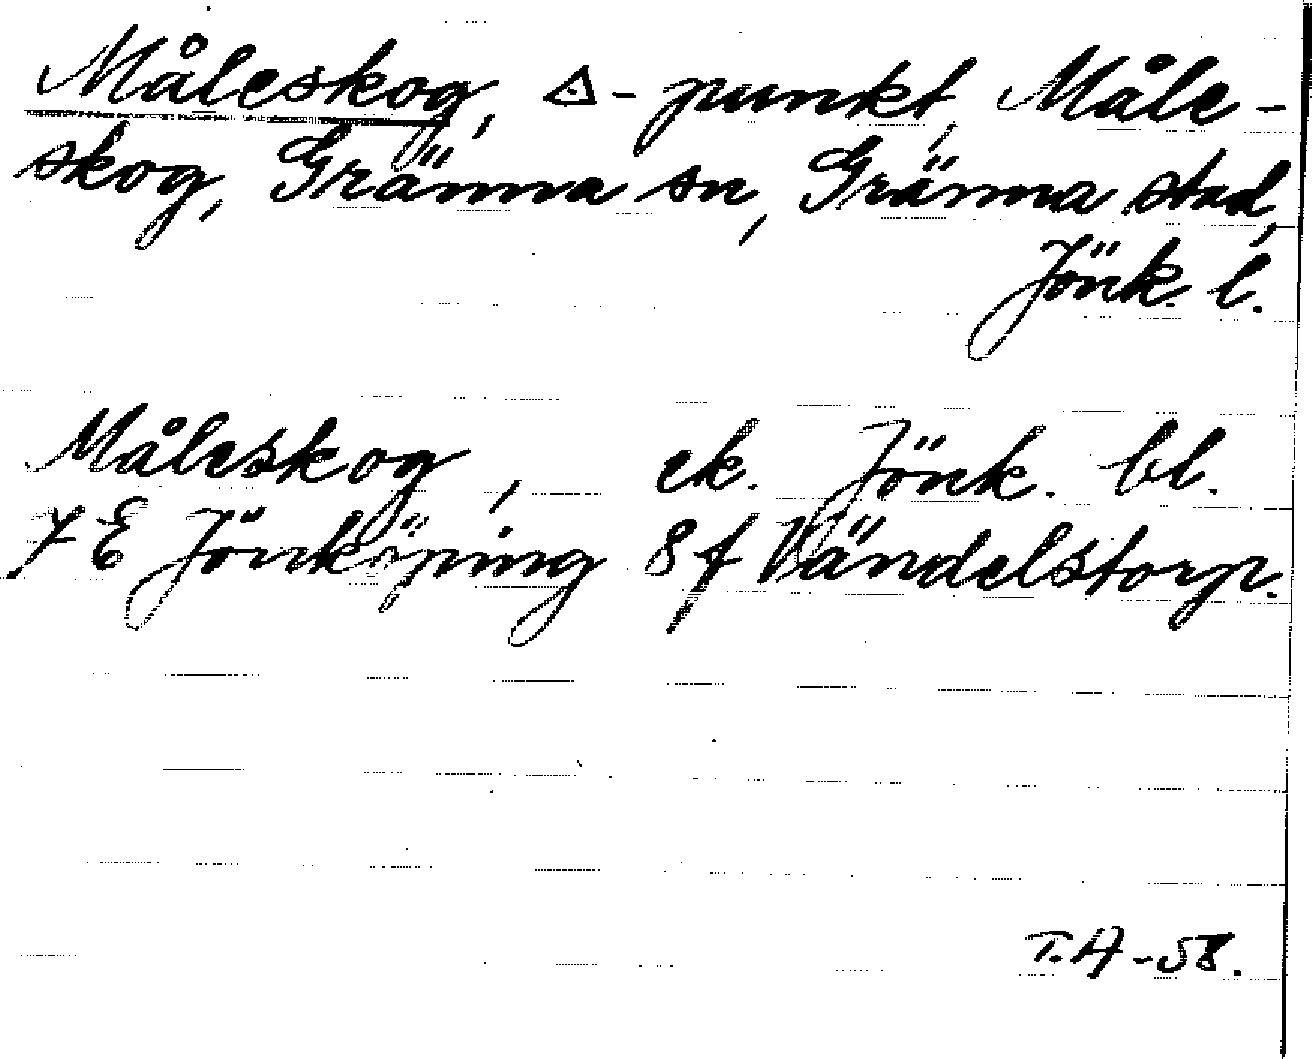 Måleskog, △-punkt, Måle-
skog, Gränna sn, Gränna stad,
Jönk. l.
Måleskog, ek. Jönk. bl.
7 E Jönköping 8 f Vändelstorp.
T.A -58.